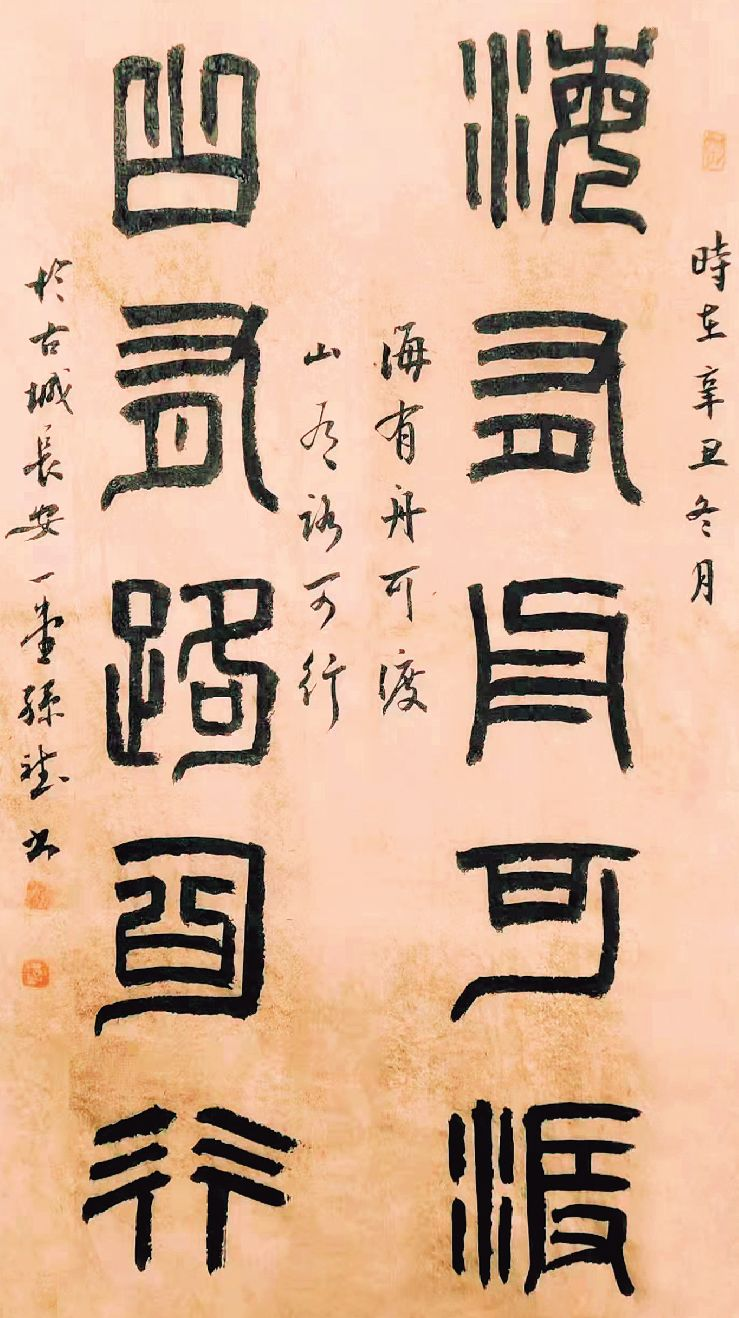 時在辛丑冬月
海有舟可渡
海有舟可渡
山有路可行
山有路可行
於古城長安一堂孫斌书